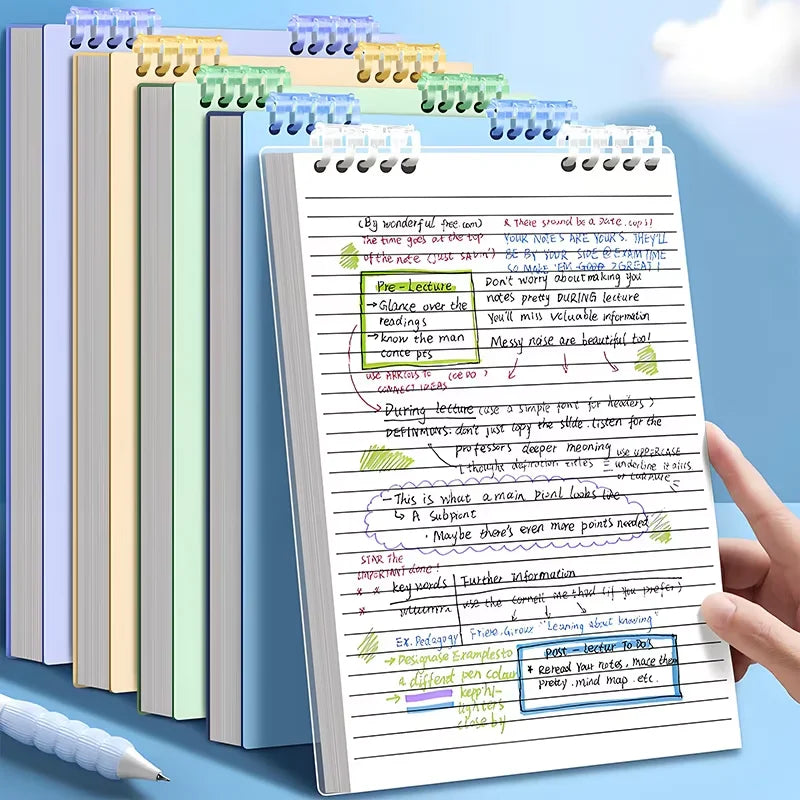 (By wonderful free.com)
The time goes at the top
of the note (just sayin')
& There should be a Date.
YOUR NOTES ARE YOUR'S. THEY'LL
BE BY YOUR SIDE @ EXAM TIME
SO MAKE 'EM GOOD GREAT!
Pre-Lecture
→Glance over the
readings
→know the man
conce pts
Don't worry about making you
notes pretty DURING lecture
You'll miss valuable information
Messy noise are beautiful too!
USE ARROWS TO
CONNECT IDEAS
During lecture (use a simple font for headers)
don't just copy the slide. listen for the
professors deeper meaning
use UPPERCASE
underline
-This is what a main piont looks like
↳ A Subpiont
· Maybe there's even more points needed
STAR The
IMPORTANT done!
* * key words
*
Further Information
use the cornell me thod (if you prefer)
EX. Pedagogy
"Leaning about knowing"
→Designase Examplesto
a differd pen colour
→
kepp hi-
lighters
close by
POST - Lectur To Do's
* Reread Your notes, mace them
pretty. mind map. etc.